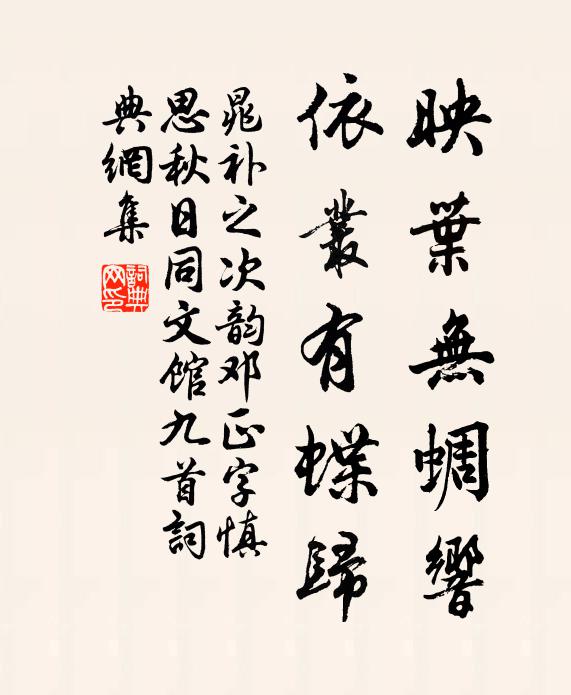 映葉無蜩響
依叢有蝶歸
晁补之次韵邓正字慎
思秋日同文馆九首詞
典網集
詞典网印